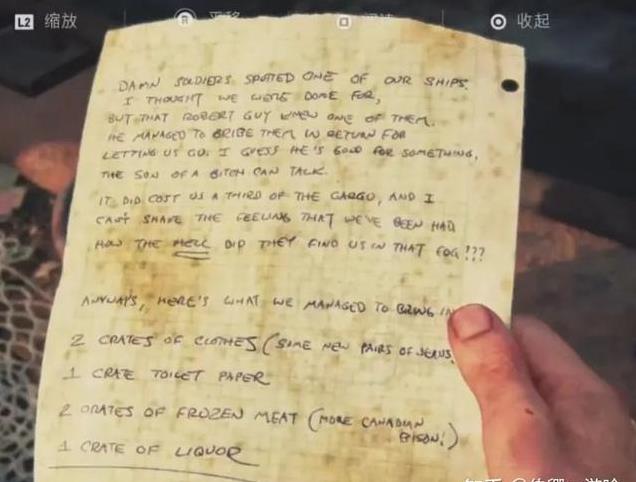 L2 缩放 R 平移 阅读 收起
DAMN SOLDIERS SPOTTED ONE OF OUR SHIPS.
I THOUGHT WE WERE DONE FOR,
BUT THAT ROBERT GUY KNEW ONE OF THEM.
HE MANAGED TO BRIBE THEM IN RETURN FOR
LETTING US GO. I GUESS HE'S GOOD FOR SOMETHING,
THE SON OF A BITCH CAN TALK.
IT DID COST US A THIRD OF THE CARGO, AND I
CAN'T SHAKE THE FEELING THAT WE'VE BEEN HAD
HOW THE HELL DID THEY FIND US IN THAT FOG!??
ANYWAYS, HERE'S WHAT WE MANAGED TO BRING IN
2 CRATES OF CLOTHES (SOME NEW PAIRS OF JEANS
1 CRATE TOILET PAPER
2 CRATES OF FROZEN MEAT (MORE CANADIAN
BISON!)
1 CRATE OF LIQUOR
知乎